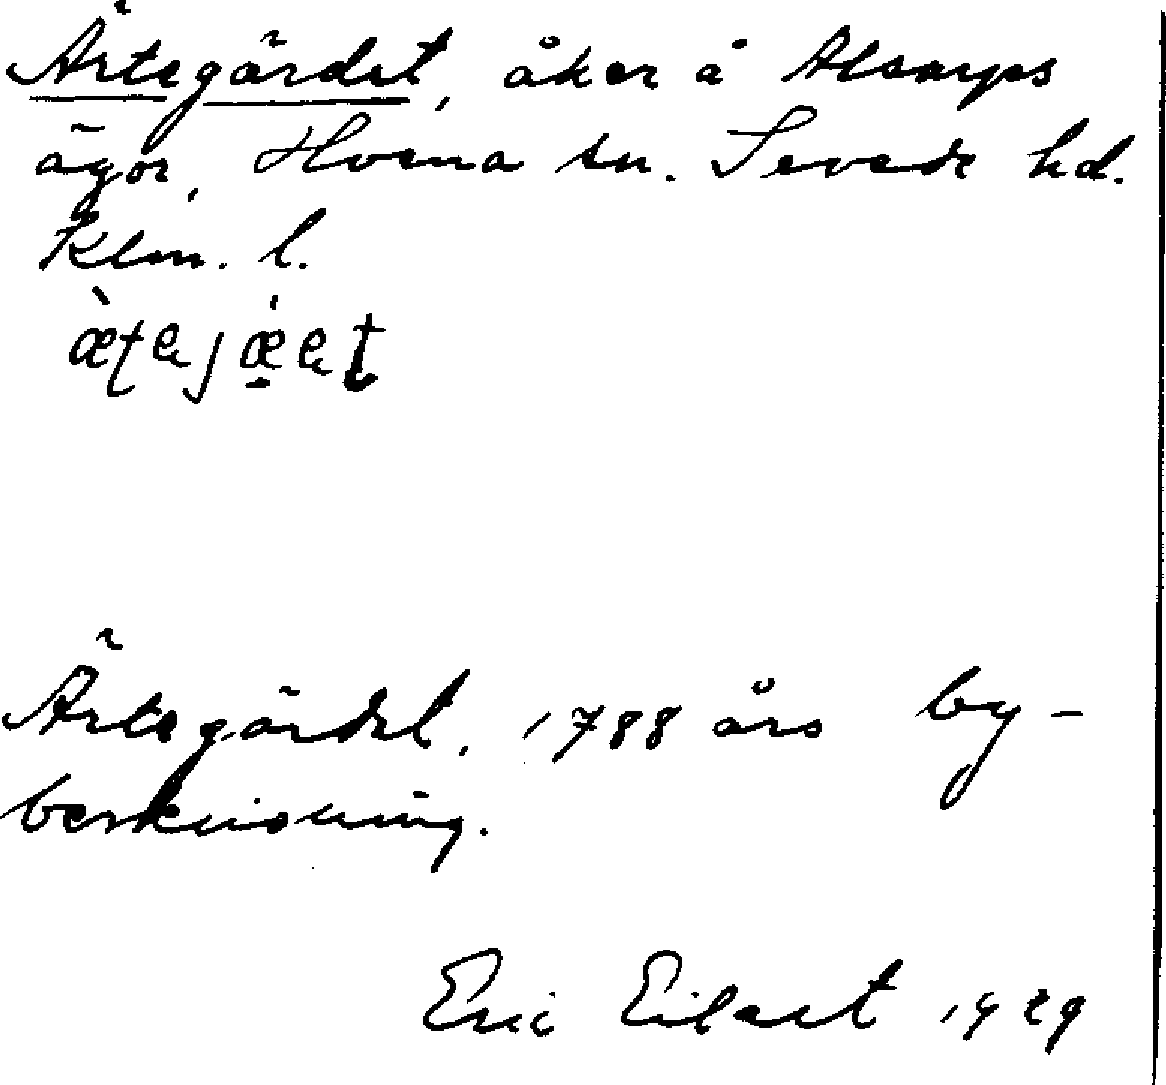 Ärtegärdet, åker å Alsarps
ägor, Hvena sn. Sevede hd.
Klm. l.
Ärtegärdet. 1788 års by-
beskrivning.
Eric Eilert 1929